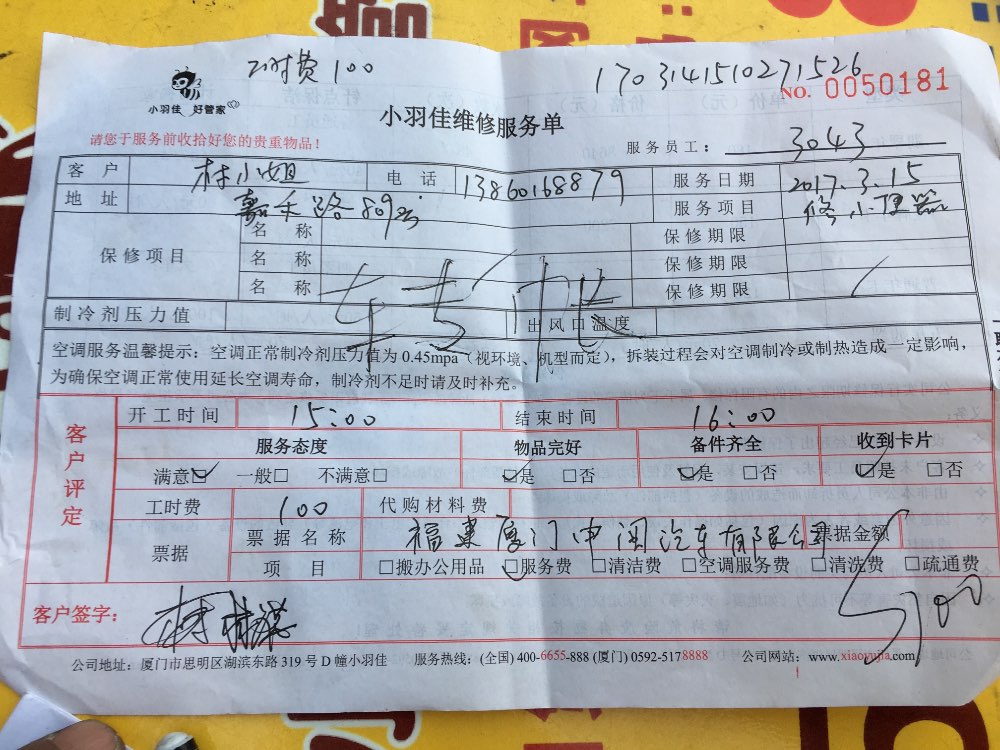 工时费 100
1703141510271526
NO. 0050181
小羽佳 好管家
小羽佳维修服务单
请您于服务前收拾好您的贵重物品！
服务员工： 3043
客户 林小姐 电话 13860168879 服务日期 2017.3.15
地址 嘉禾路809号 服务项目 修小便器
保修项目 名称 保修期限
名称 保修期限
名称 保修期限
制冷剂压力值 出风口温度
空调服务温馨提示：空调正常制冷剂压力值为 0.45mpa（视环境、机型而定），拆装过程会对空调制冷或制热造成一定影响，
为确保空调正常使用延长空调寿命，制冷剂不足时请及时补充。
客户评定
开工时间 15:00 结束时间 16:00
服务态度 物品完好 备件齐全 收到卡片
满意☑ 一般□ 不满意□ ☑是 □否 ☑是 □否 ☑是 □否
工时费 100 代购材料费
票据 票据名称 福建厦门中闽汽车有限公司 票据金额
项目 □搬办公用品 ☑服务费 □清洁费 □空调服务费 □清洗费 □疏通费
客户签字：
公司地址：厦门市思明区湖滨东路 319 号 D 幢小羽佳 服务热线：(全国) 400-6655-888 (厦门) 0592-5178888 公司网站：www.xiaoyujia.com